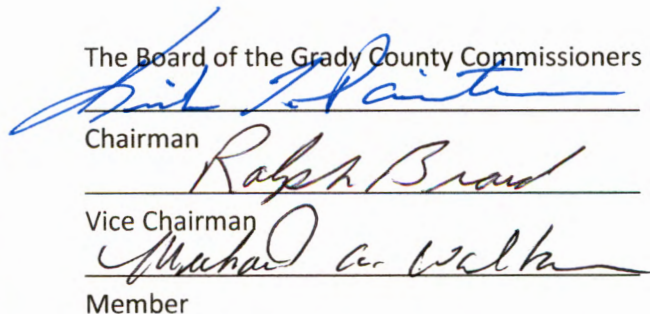 The Board of the Grady County Commissioners
Chairman
Ralph
Vice Chairman
Michael a. Walker
Member